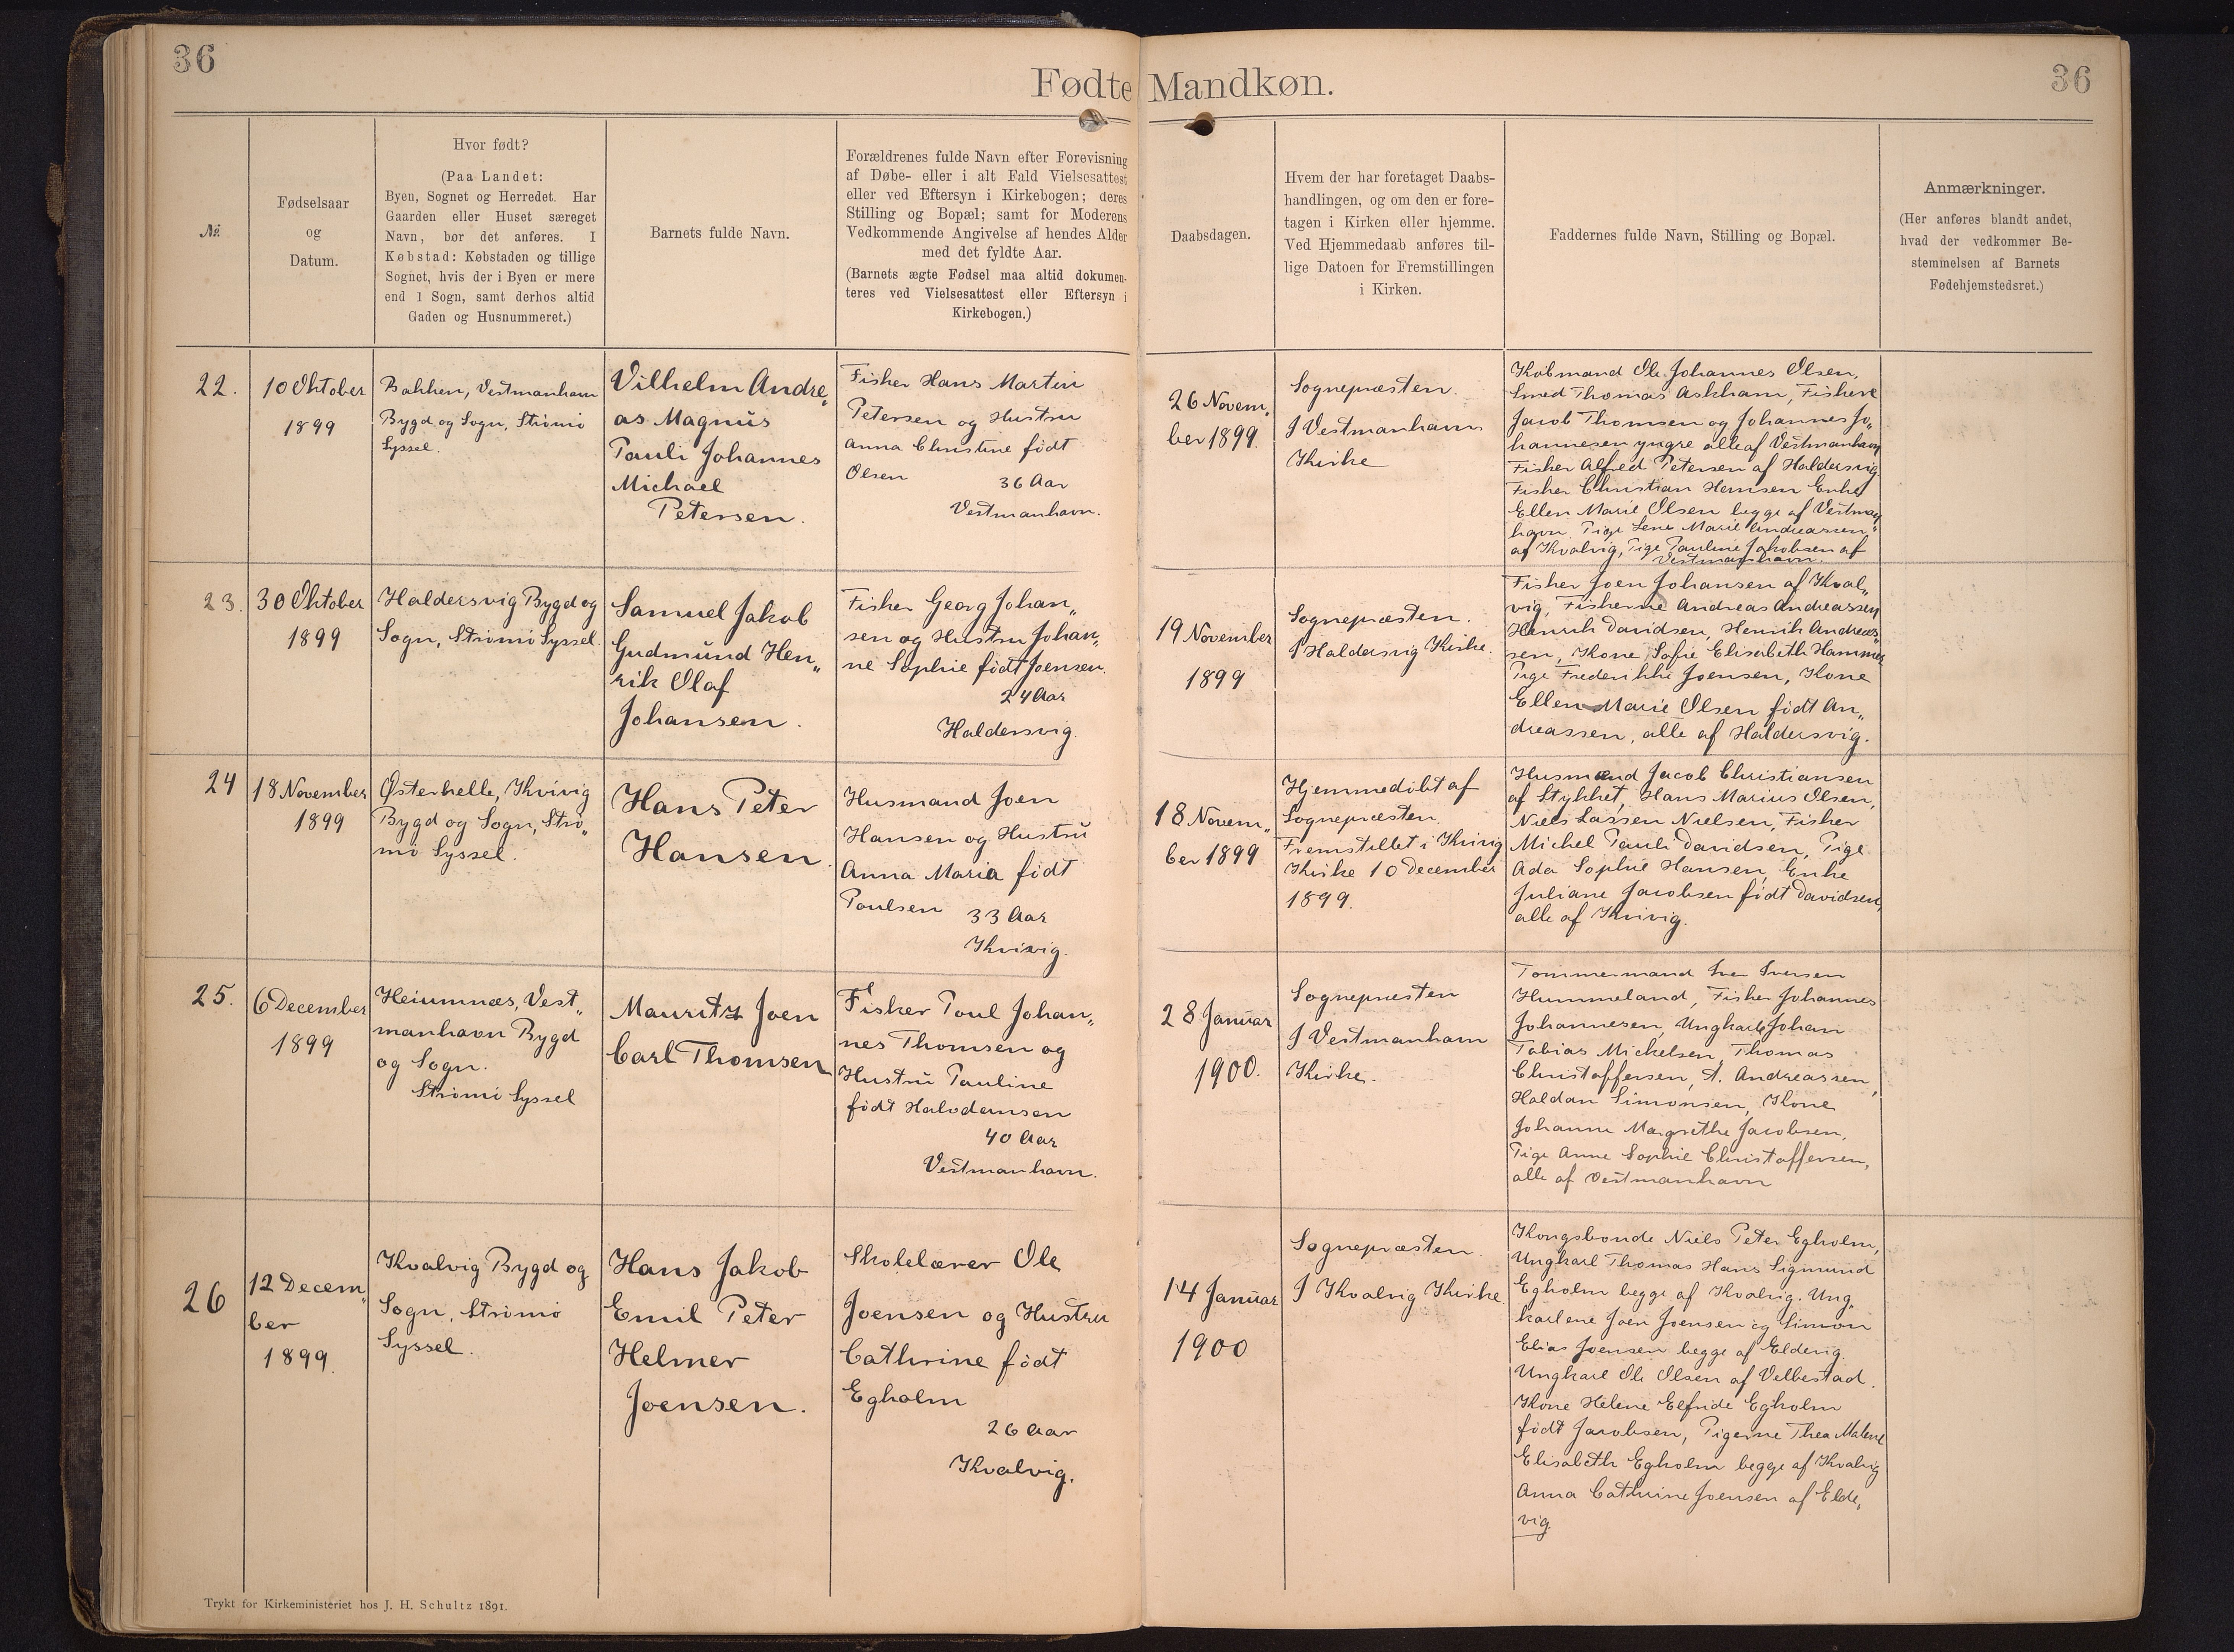 36
Fødte Mandkøn.
36
№
Fødselsaar
og
Datum.
Hvor født?
(Paa Landet:
Byen, Sognet og Herredet. Har
Gaarden eller Huset særeget
Navn, bør det anføres. I
Købstad: Købstaden og tillige
Sognet, hvis der i Byen er mere
end 1 Sogn, samt derhos altid
Gaden og Husnummeret.)
Barnets fulde Navn.
Forældrenes fulde Navn efter Forevisning
af Døbe- eller i alt Fald Vielsesattest
eller ved Eftersyn i Kirkebogen; deres
Stilling og Bopæl; samt for Moderens
Vedkommende Angivelse af hendes Alder
med det fyldte Aar.
(Barnets ægte Fødsel maa altid dokumen-
teres ved Vielsesattest eller Eftersyn i
Kirkebogen.)
Daabsdagen.
Hvem der har foretaget Daabs-
handlingen, og om den er fore-
tagen i Kirken eller hjemme.
Ved Hjemmedaab anføres til-
lige Datoen for Fremstillingen
i Kirken.
Faddernes fulde Navn, Stilling og Bopæl.
Anmærkninger.
(Her anføres blandt andet,
hvad der vedkommer Be-
stemmelsen af Barnets
Fødehjemstedsret.)
22.
10 Oktober
1899
Bakken, Vestmanhavn
Bygd og Sogn, Strömö
Syssel.
Vilhelm Andre„
as Magnus
Pauli Johannes
Michael
Petersen.
Fisker Hans Martin
Petersen og Hustru
Anna Christine født
Olsen
36 Aar
Vestmanhavn.
26 Novem„
ber 1899.
Sognepræsten.
I Vestmanhavn
Kirke
Købmand Ole Johannes Olsen,
Smed Thomas Askham, Fiskere
Jacob Thomsen og Johannes Jo„
hannesen yngre alle af Vestmanhavn
Fisker Alfred Petersen af Haldersvig
Fisker Christian Hansen Enke
Ellen Marie Olsen begge af Vestman„
havn. Pige Lena Marie Andreassen
af Kvalvig, Pige Pauline Jakobsen af
Vestmanhavn.
23.
30 Oktober
1899
Haldersvig Bygd og
Sogn, Strömö Syssel.
Samuel Jakob
Gudmund Hen„
rik Olaf
Johansen.
Fisker Georg Johan„
sen og Hustru Johan„
ne Sophie født Joensen.
24 Aar
Haldersvig.
19 November
1899
Sognepræsten.
I Haldersvig Kirke.
Fisker Joen Johansen af Kval„
vig, Fiskerne Andreas Andreassen
Henrik Davidsen, Henrik Andreas„
sen, Kone Sofie Elisabeth Hammer
Pige Frederikke Joensen, Kone
Ellen Marie Olsen født An„
dreassen, alle af Haldersvig.
24
18 November
1899
Østerhelle, Kvivig
Bygd og Sogn, Strö„
mö Syssel.
Hans Peter
Hansen.
Husmand Joen
Hansen og Hustru
Anna Maria født
Poulsen
33 Aar
Kvivig.
18 Novem„
ber 1899
Hjemmedöbt af
Sognepræsten.
Fremstillet i Kvivig
Kirke 10 December
1899.
Husmænd Jacob Christiansen
af Stykket, Hans Marius Olsen,
Niels Lassen Nielsen, Fisker
Michel Pauli Davidsen, Pige
Ada Sophie Hansen, Enke
Juliane Jacobsen født Davidsen,
alle af Kvivig.
25.
6 December
1899
Heiumnæs, Vest„
manhavn Bygd
og Sogn.
Strömö Syssel
Mauritz Joen
Carl Thomsen
Fisker Poul Johan„
nes Thomsen og
Hustru Pauline
født Halvdansen
40 Aar
Vestmanhavn.
28 Januar
1900.
Sognepræsten
I Vestmanhavn
Kirke.
Tømmermand Iver Iversen
Hummeland, Fisker Johannes
Johannesen, Ungkarle Johan
Tobias Mickelsen, Thomas
Christoffersen, A. Andreassen,
Haldan Simonsen, Kone
Johanne Margrethe Jacobsen,
Pige Anne Sophie Christoffersen,
alle af Vestmanhavn
26
12 Decem„
ber
1899.
Kvalvig Bygd og
Sogn, Strömö
Syssel.
Hans Jakob
Emil Peter
Helmer
Joensen.
Skolelærer Ole
Joensen og Hustru
Cathrine født
Egholm
26 Aar
Kvalvig.
14 Januar
1900
Sognepræsten.
I Kvalvig Kirke
Kongsbonde Niels Peter Egholm,
Ungkarl Thomas Hans Sigmund
Egholm begge af Kvalvig. Ung„
karlene Joen Joensen og Simon
Elias Joensen begge af Eldevig
Ungkarl Ole Olsen af Velbestad.
Kone Helene Elfride Egholm
født Jacobsen, Pigerne Thea Malene
Elisabeth Egholm begge af Kvalvig
Anna Cathrine Joensen af Elde„
vig
Trykt for Kirkeministeriet hos J. H. Schultz 1891.